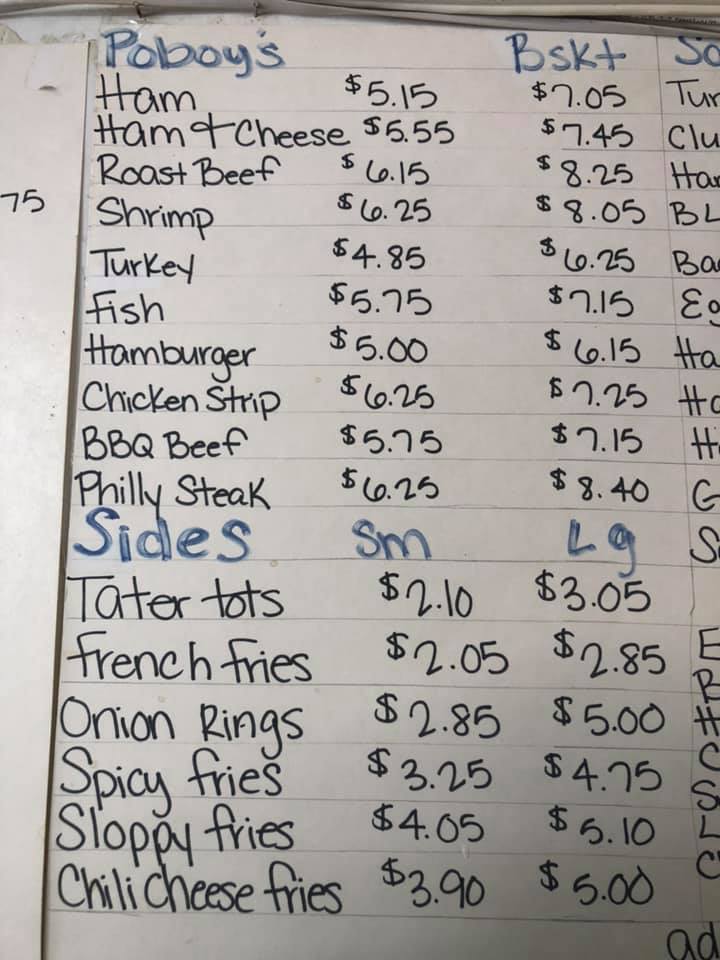 Poboy's Bskt
Ham $5.15 $7.05
Ham & Cheese $5.55 $7.45
Roast Beef $6.15 $8.25
75
Shrimp $6.25 $8.05 BL
Turkey $4.85 $6.25
fish $5.75 $7.15
Hamburger $5.00 $6.15
Chicken Strip $6.25 $7.25
BBQ Beef $5.75 $7.15
Philly Steak $6.25 $8.40
Sides Sm Lg
Tater tots $2.10 $3.05
french fries $2.05 $2.85
Onion Rings $2.85 $5.00
Spicy fries $3.25 $4.75
Sloppy fries $4.05 $5.10
Chili Cheese fries $3.90 $5.00
ad